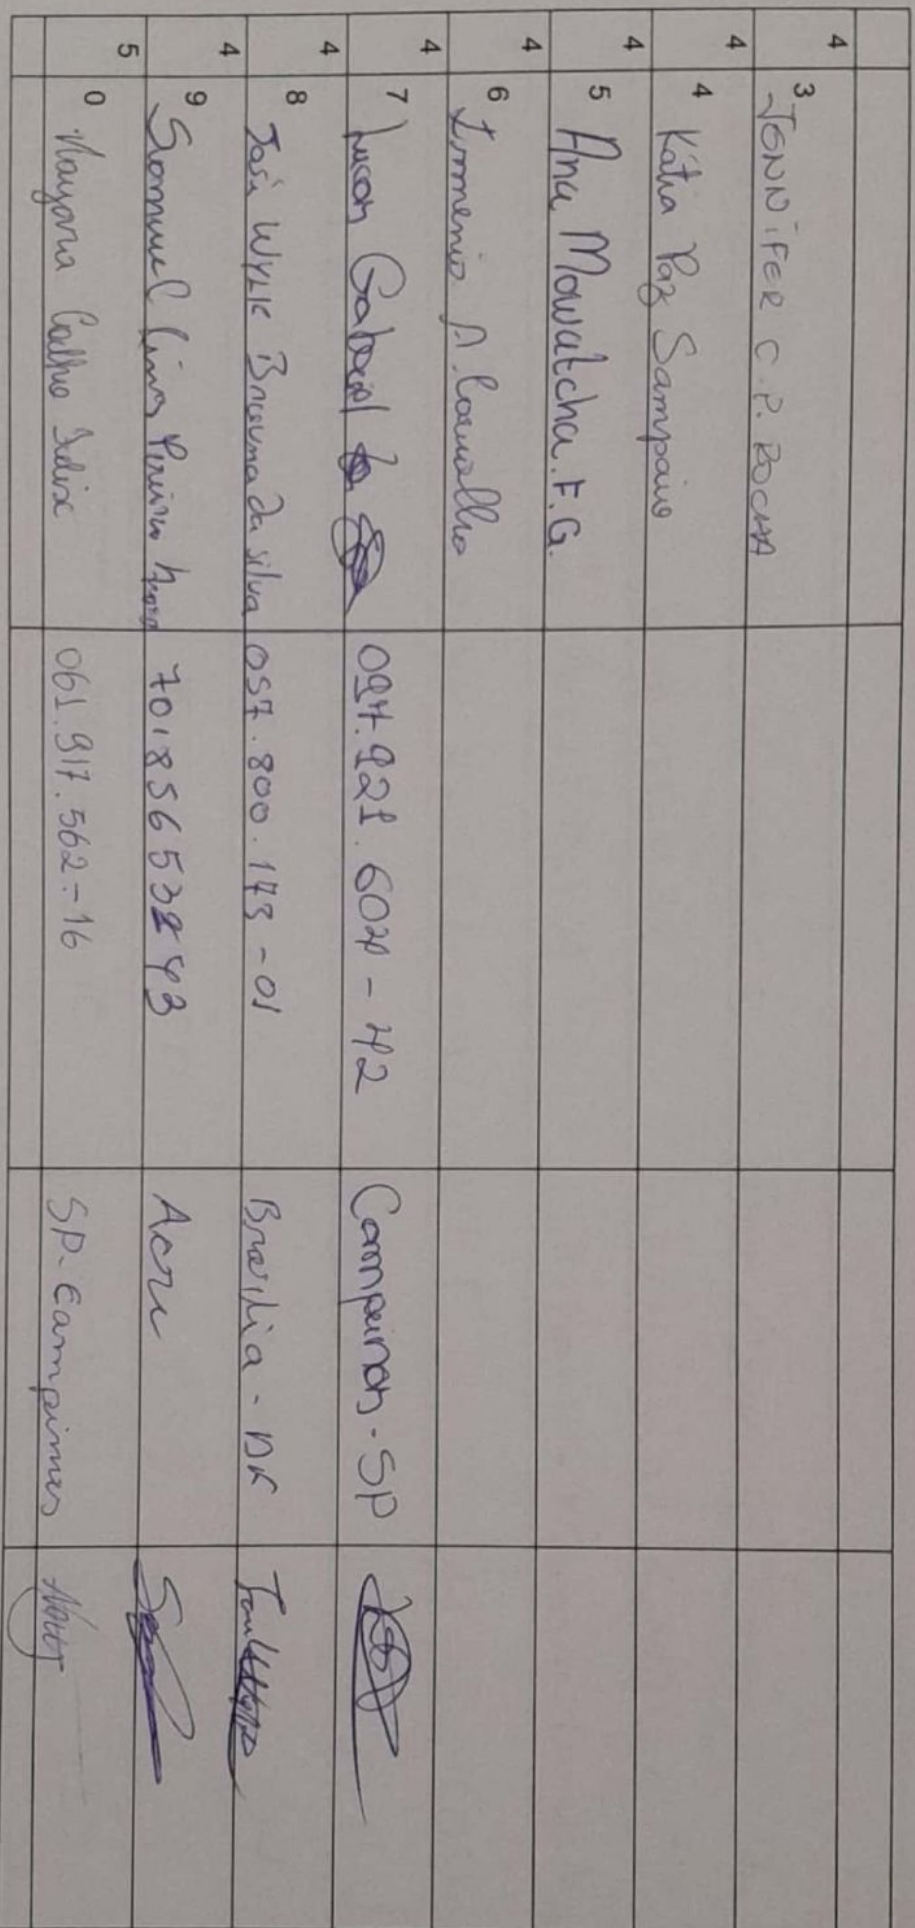 43 JENNiFER C.P. ROCHA
44 Kátia Paz Sampaio
45 Ana Mowatcha.F.G.
46 A. Carvalho
47 Luan Gabriel 097.921.602-42 Campinas-SP
48 José WYLK Brauna da silva 057.800.173-01 Brasília-DF
49 Samuel Lima 70185653243 Acre
50 Mayara Coelho 061.917.562-16 SP-Campinas